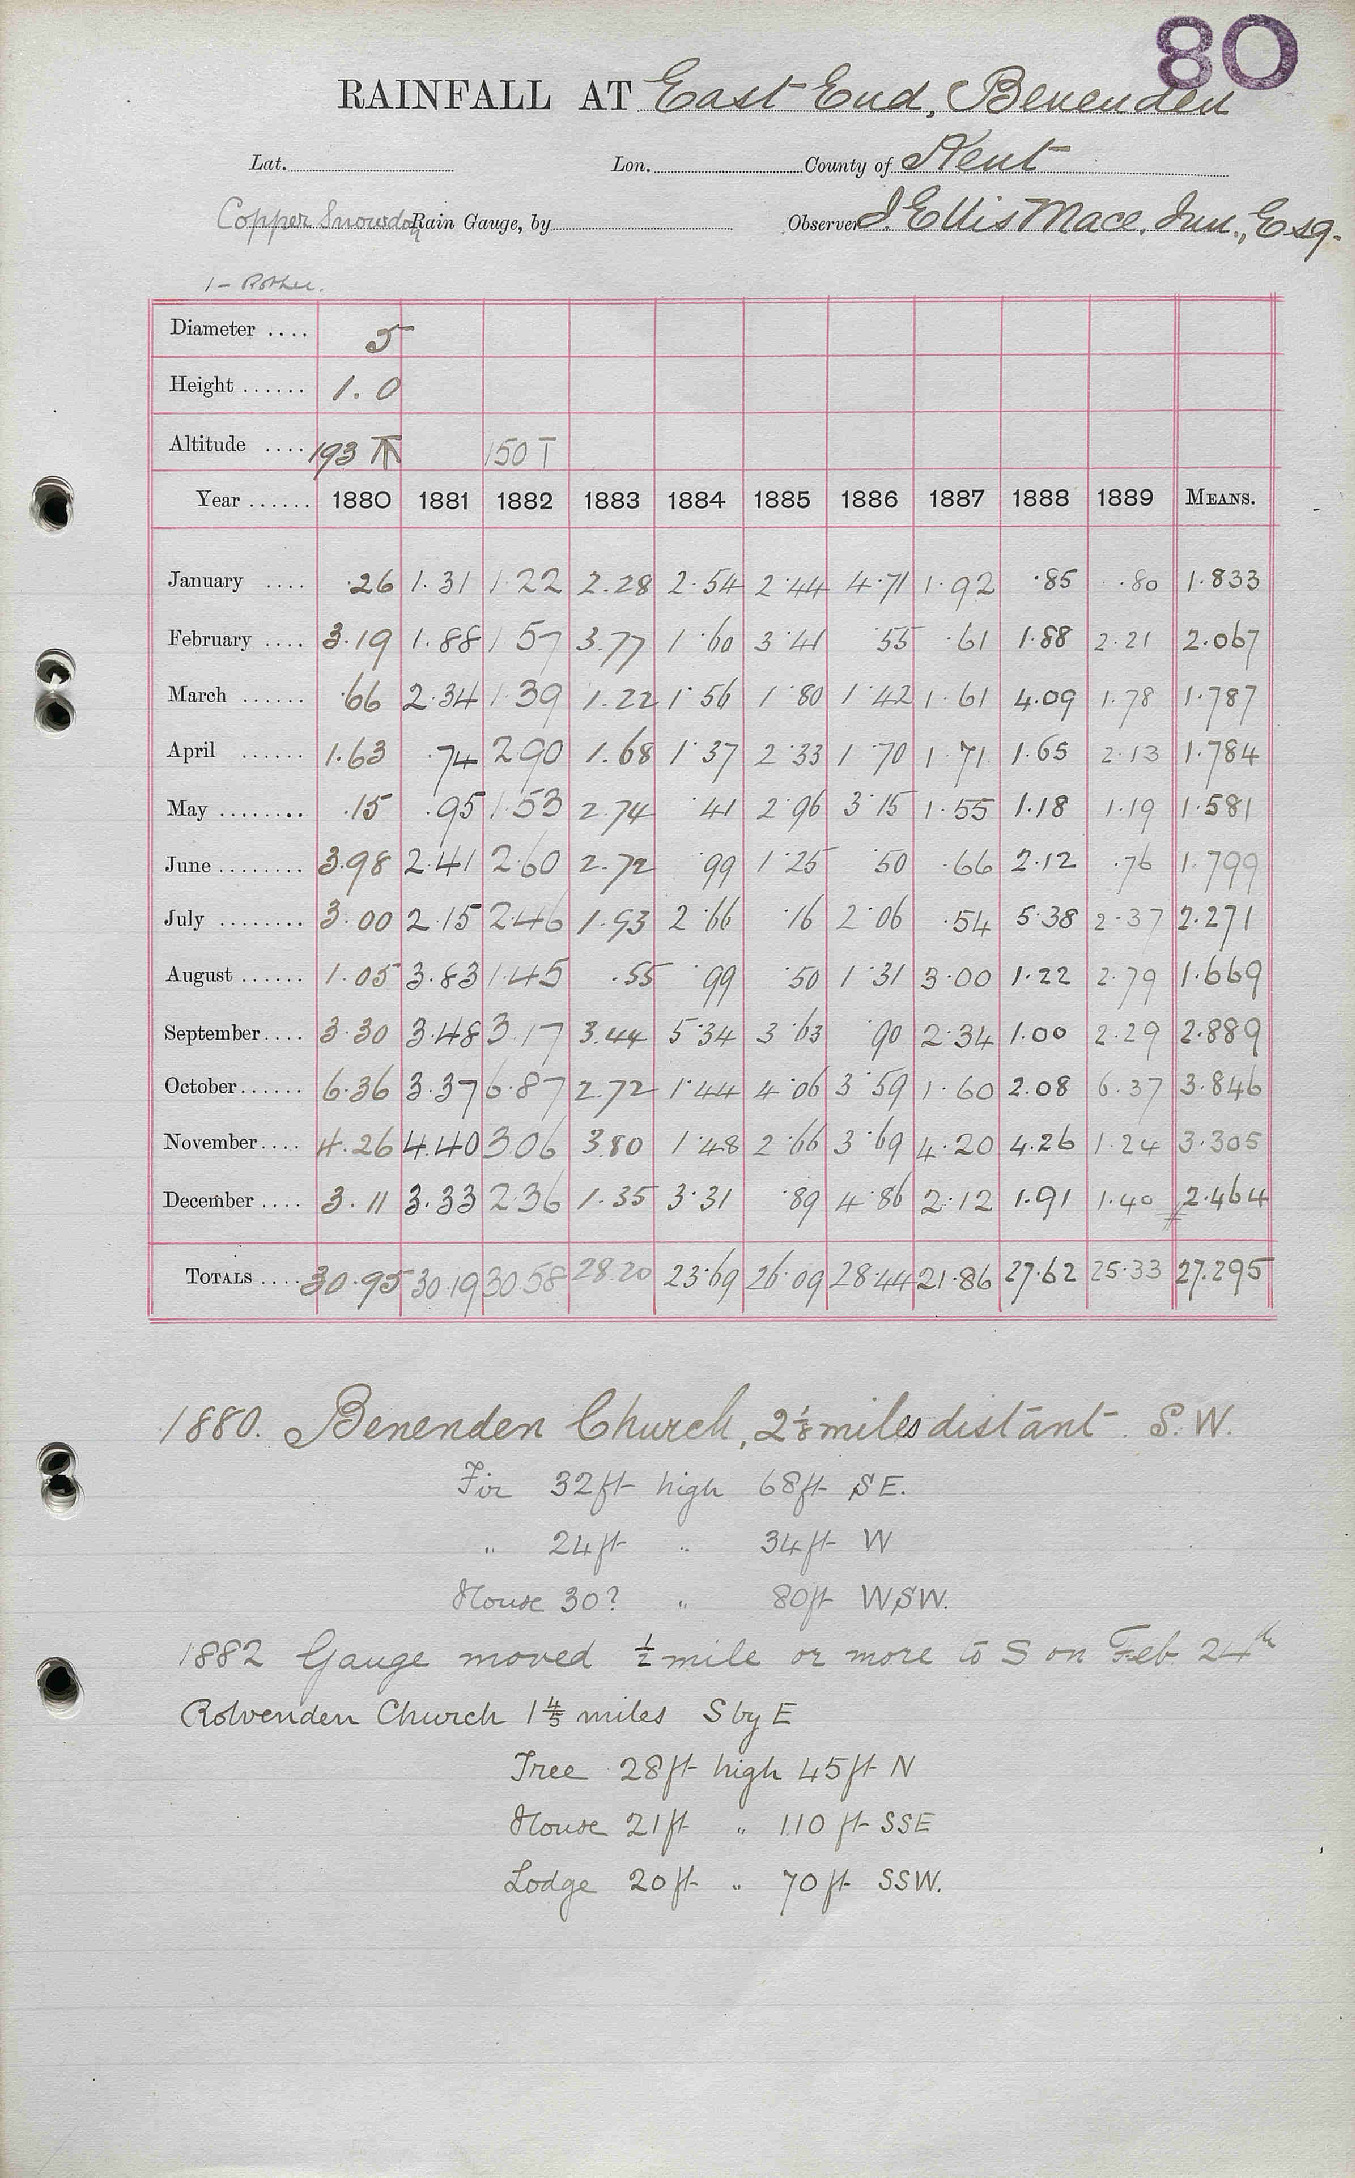 80
RAINFALL AT East End, Benenden
Lat. Lon. County of Kent
Copper Snowdon Rain Gauge, by Observer J. Ellis Mace, Jun., Esq.
1 - Rother.
Diameter .... 5
Height ...... 1.0
Altitude .... 193 T 150 T
Year ...... 1880 1881 1882 1883 1884 1885 1886 1887 1888 1889 MEANS.
January .... .26 1.31 1.22 2.28 2.54 2.44 4.71 1.92 .85 .80 1.833
February .... 3.19 1.88 1.57 3.77 1.60 3.41 .55 .61 1.88 2.21 2.067
March ...... .66 2.34 1.39 1.22 1.56 1.80 1.42 1.61 4.09 1.78 1.787
April ...... 1.63 .74 2.90 1.68 1.37 2.33 1.70 1.71 1.65 2.13 1.784
May ........ .15 .95 1.53 2.74 .41 2.96 3.15 1.55 1.18 1.19 1.581
June ........ 3.98 2.41 2.60 2.72 .99 1.25 .50 .66 2.12 .76 1.799
July ........ 3.00 2.15 2.46 1.93 2.66 .16 2.06 .54 5.38 2.37 2.271
August ...... 1.05 3.83 1.45 .55 .99 .50 1.31 3.00 1.22 2.79 1.669
September .... 3.30 3.48 3.17 3.44 5.34 3.63 .90 2.34 1.00 2.29 2.889
October ...... 6.36 3.37 6.87 2.72 1.44 4.06 3.59 1.60 2.08 6.37 3.846
November .... 4.26 4.40 3.06 3.80 1.48 2.66 3.69 4.20 4.26 1.24 3.305
December .... 3.11 3.33 2.36 1.35 3.31 .89 4.86 2.12 1.91 1.40 2.464
TOTALS .... 30.95 30.19 30.58 28.20 23.69 26.09 28.44 21.86 27.62 25.33 27.295
1880. Benenden Church, 2⅛ miles distant S.W.
Fir 32ft high 68ft SE.
" 24ft " 34ft W
House 30? " 80ft WSW.
1882 Gauge moved ½ mile or more to S on Feb. 24th
Rolvenden Church 1⅘ miles S by E
Tree 28ft high 45ft N
House 21ft " 110 ft SSE
Lodge 20ft " 70ft SSW.